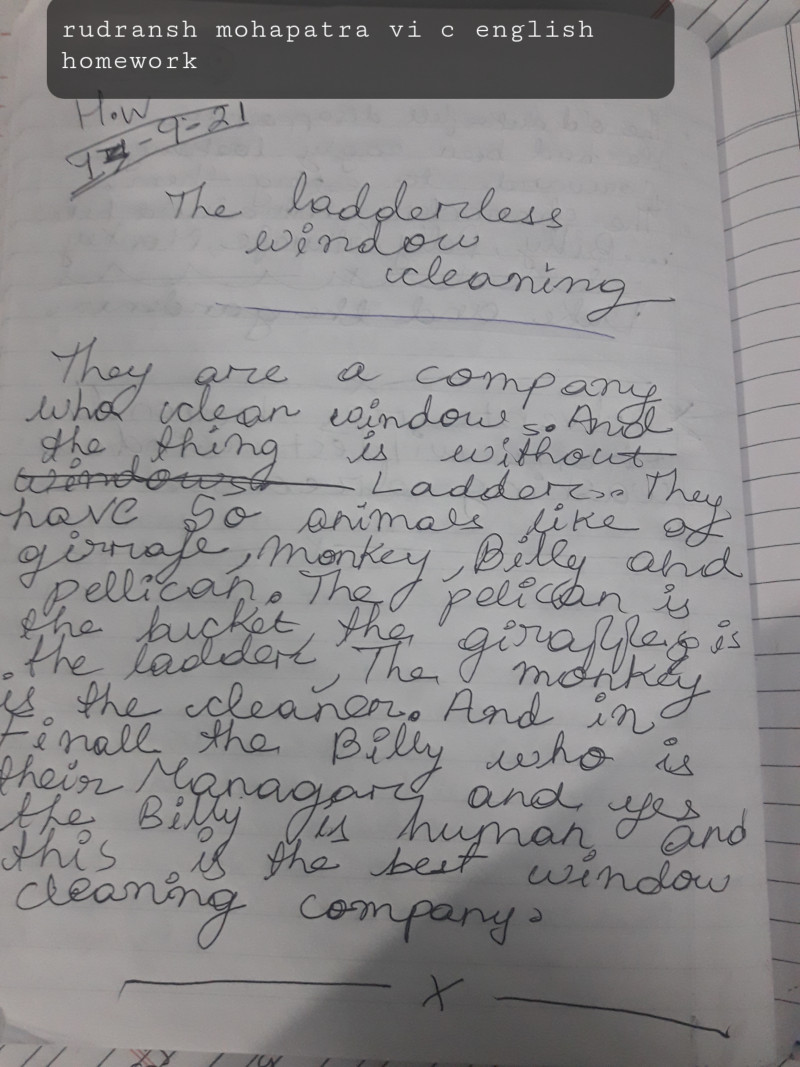 rudransh mohapatra vi c english
homework
H.W
-9-21
The ladderless
window
cleaning
They are a company
who clean windows. And
the thing is without
windows Ladder.. They
have So animals like of
girrafe, Monkey, Billy and
pellican. The pelican is
the bucket, the giraffe is
the ladder, The monkey
is the cleaner. And in
Finall the Billy who is
their Managar, and yes
the Billy is human and
this is the best window
cleaning company.
X